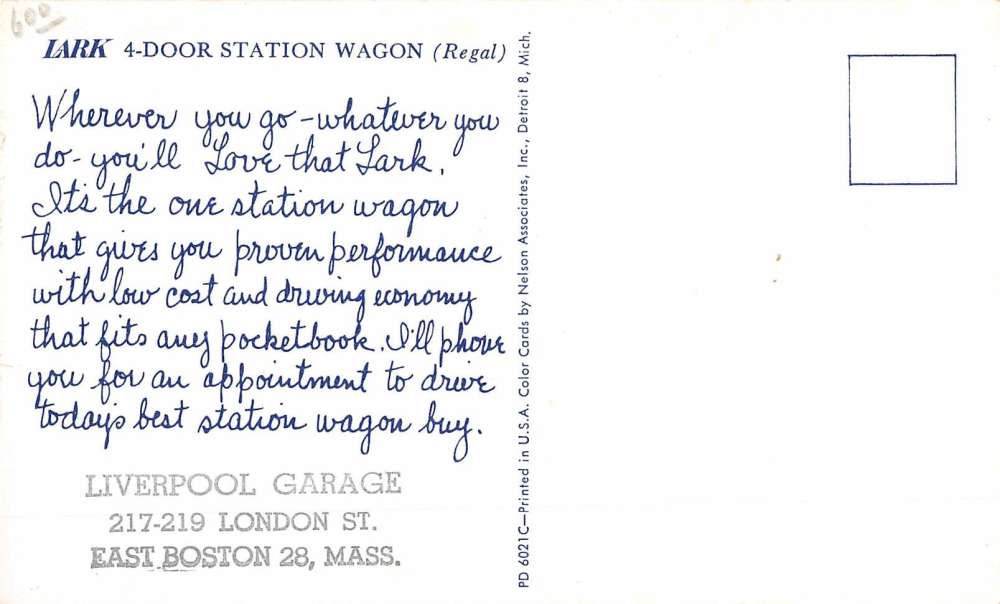 600
LARK 4-DOOR STATION WAGON (Regal)
Wherever you go - whatever you
do - you'll Love that Lark.
It's the one station wagon
that gives you proven performance
with low cost and driving economy
that fits any pocketbook. I'll phone
you for an appointment to drive
today's best station wagon buy.
LIVERPOOL GARAGE
217-219 LONDON ST.
EAST BOSTON 28, MASS.
PD 6021C—Printed in U.S.A. Color Cards by Nelson Associates, Inc., Detroit 8, Mich.